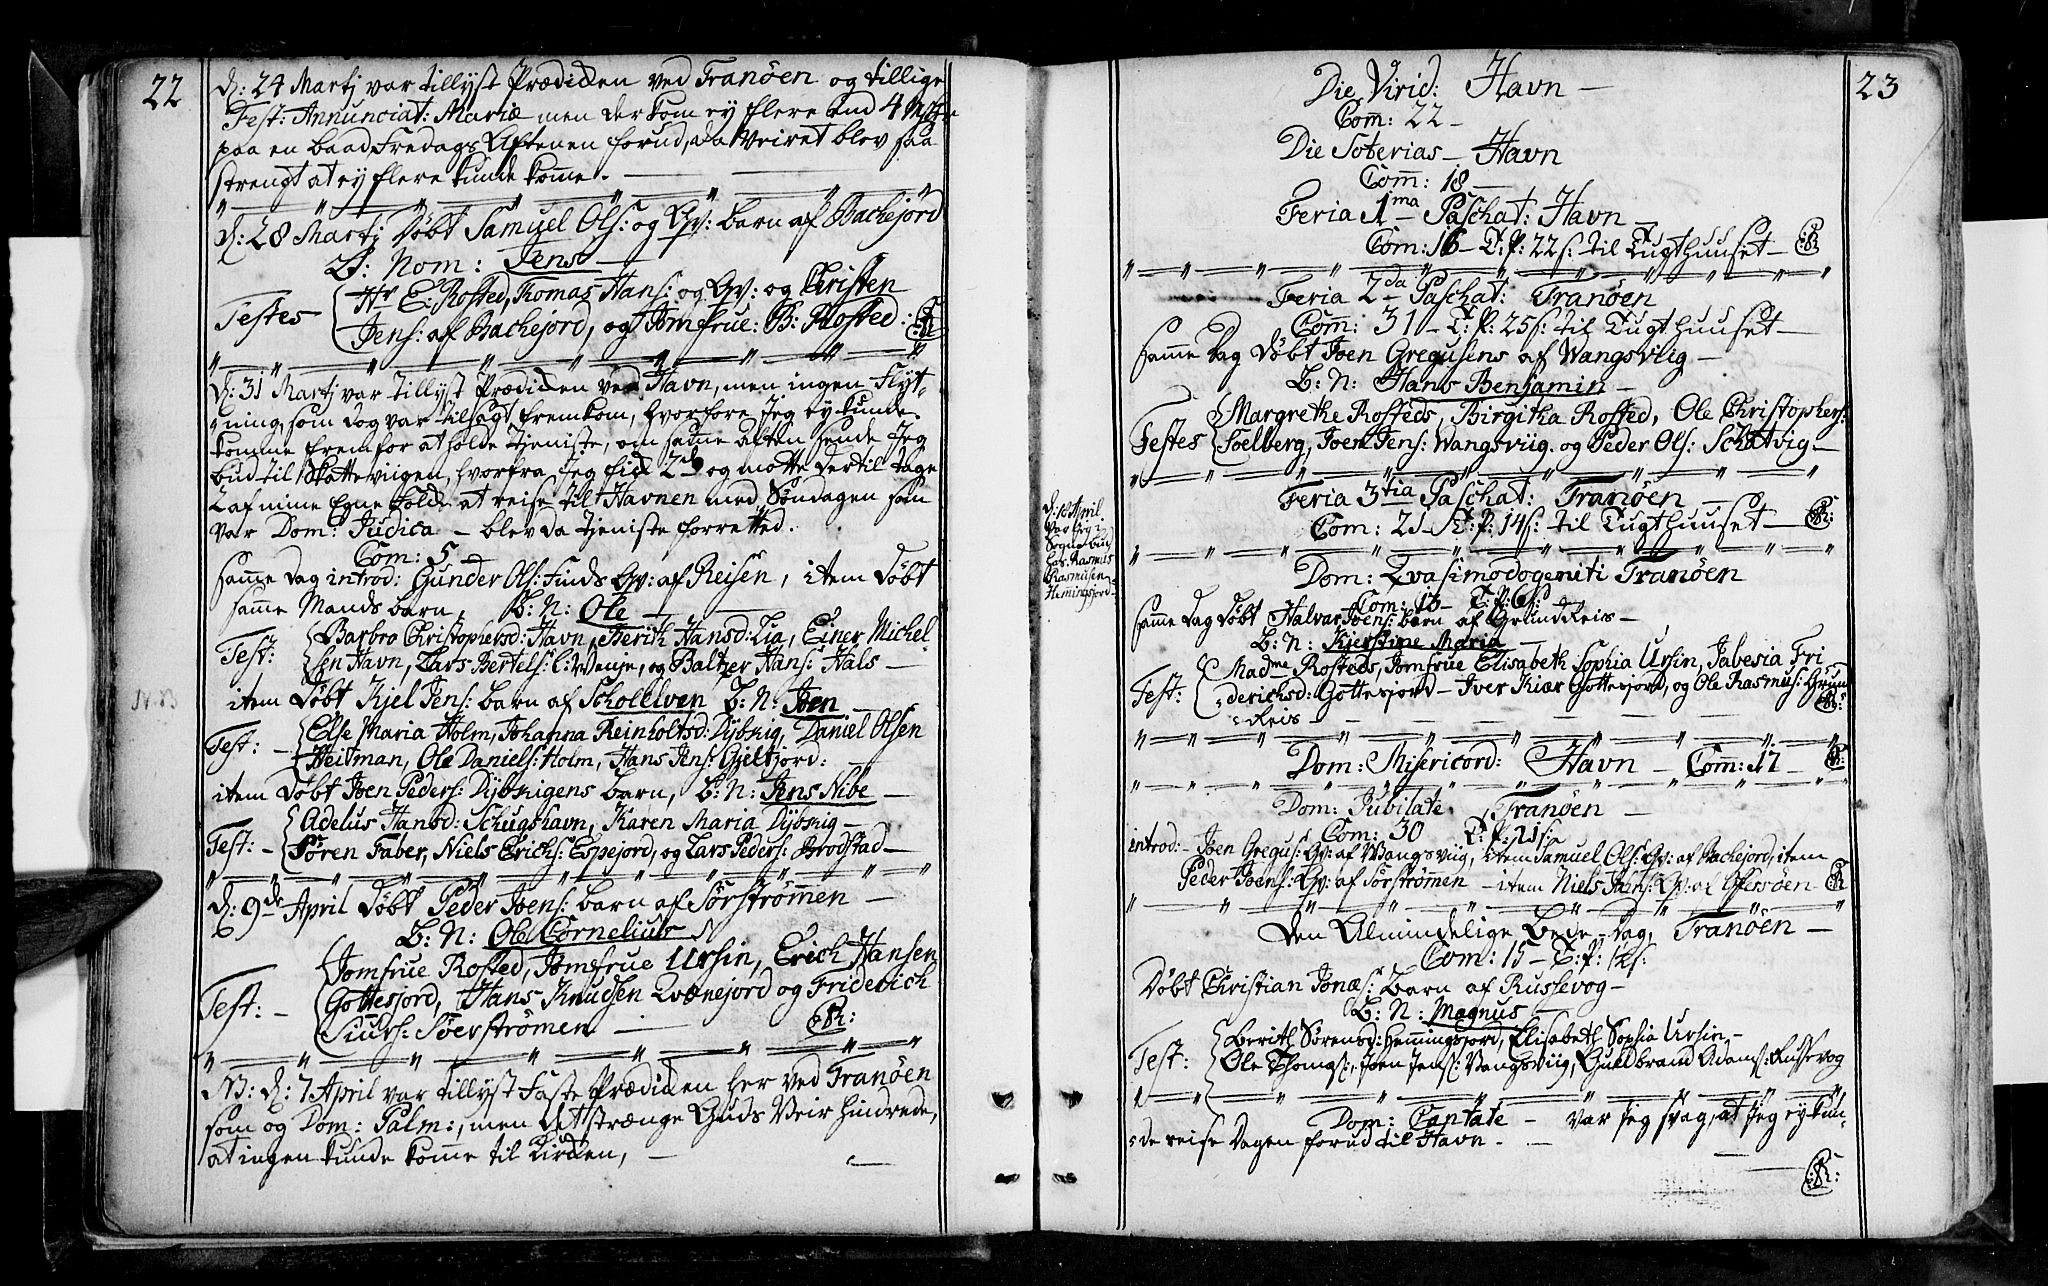 22
d: 24 Martj var tillyst Prædicken ved Tranöen og tillige
Fest: Annunciat: Mariæ men der kom ey flere end 4
paa en baad, Fredags Aftenen forud, da Veiret blev saa
strengt at ey flere kunde komme.
d: 28 Martj Döbt Samuel Ols: og Hv: barn af Bachejord
Nom: Jens
Testes
Hr E: Rosted, Tomas Hans: og Hv: og Christen
Jens: af Bachejord, og Jomfrue: B: Rosted:
d: 31 Martj var tillyst Prædicken ved Havn, men ingen Flyt-
ning, som dog var tilsagt fremkom, hvorfore jeg ey kunde
komme frem for at holde tjeniste, om samme aften sende jeg
bud til Skatteviigen, hvorfra jeg fik 2de og motte dertil tage
2 af mine Egne Folck at reise til Havnen med Söndagen som
var Dom: Judica – blev da tjeniste forretted.
Com: 5
samme Dag introd: Gunder Ols: Finds Hv: af Reisen, item Döbt
samme Mands barn, B: N: Ole
Test:
Barbro Christophersd: Havn, Berith Hansd: Lia, Einer Michel
sen Havn, Lars Bertels: l: Wenje, og Baltzer Hans: Hals
item Döbt Kjel Jens: barn af Schollelven B: N: Joen
Test:
Else Maria Holm, Johanna Reinholtsd: Dÿbvig, Daniel Olsen
Heitman, Ole Daniels: Holm, Hans Jens: Gjeltfjord:
item Döbt Joen Peders: Dÿbvigens barn, B: N: Jens Nibe
Test:
Adelus Hansd: Schugshavn, Karen Maria Dÿbvig
Sören Faber, Niels Erichs: Espejord, og Lars Peders: Brodstad
d: 9de April Döbt Peder Joens: barn af Sörströmmen
B: N: Ole Cornelius
Test:
Jomfrue Rosted, Jomfrue Ursin, Erich Hansen
Gottesjord, Hans Knudsen Qvænejord og Friderich
Siurs: Söerströmen
NB: d: 7 April var tillyst Faste Prædicken her ved Tranöen
som og Dom: Palm:, men det strænge Guds Veir hindrede,
at ingen kunde komme til Kircken,
23
Die Virid: Havn
Com: 22
Die Soterias – Havn
Com: 18
Feria 1ma Paschat: Havn
Com: 16 – T: P: 22 s: til Tugthuuset
Feria 2da Paschat: Tranöen
Com: 31 – T: P: 25 s: til Tugthuuset
samme Dag Döbt Joen Gregusens af Wangsviig
B: N: Hans Benjamin
Testes
Margrethe Rosteds, Birgitha Rosted, Ole Christophers:
Soelberg, Joen Jens: Wangsviig. og Peder Ols: Schatvig
Feria 3tia Paschat: Tranöen
Com: 21 – T: P: 14 s: til Tugthuuset
d: 18 April
var jeg i
Sogne bud
hos Rasmus
Rasmusen
Hemingsjord
Dom: Qvasimodogeniti Tranöen
Com: 13 – T: P: 6 s:
samme Dag Döbt Halvar Joens: barn af GrundReis
B: N: Kjerstine Maria
Test:
Madme Rosteds, Jomfrue Elisabeth Sophia Ursin, Jabesia Fri
derichsd: Gottesjord – Iver Kiær Gottesjord, og Ole Rasmus: Grun
Reis
Dom: Misericord: Havn – Com: 17
Dom: Jubilate Tranöen
Com: 30 T: P: 21 s:
introd: – Joen Gregus: Hv: af Wangsviig, item Samuel Ols: Hv: af Bachejord, item
Peder Joens: Hv: af Sörströmmen – item Niels Jens: Hv: af
Den Almindelige Bede-Dag, Tranöen
Com: 15 – T: P:
Döbt Christian Jonæs: Barn af Russevog
B: N: Magnus
Test:
Berith Sörensd: Hemmingsjord, Elisabeth Sophia Ursin
Ole Thoms:, Joen Jens: Vangsviig, Guldbrand Adams: Russevog
Dom: Cantate – var jeg svag, at jeg ey kun-
de reise Dagen forud til Havn